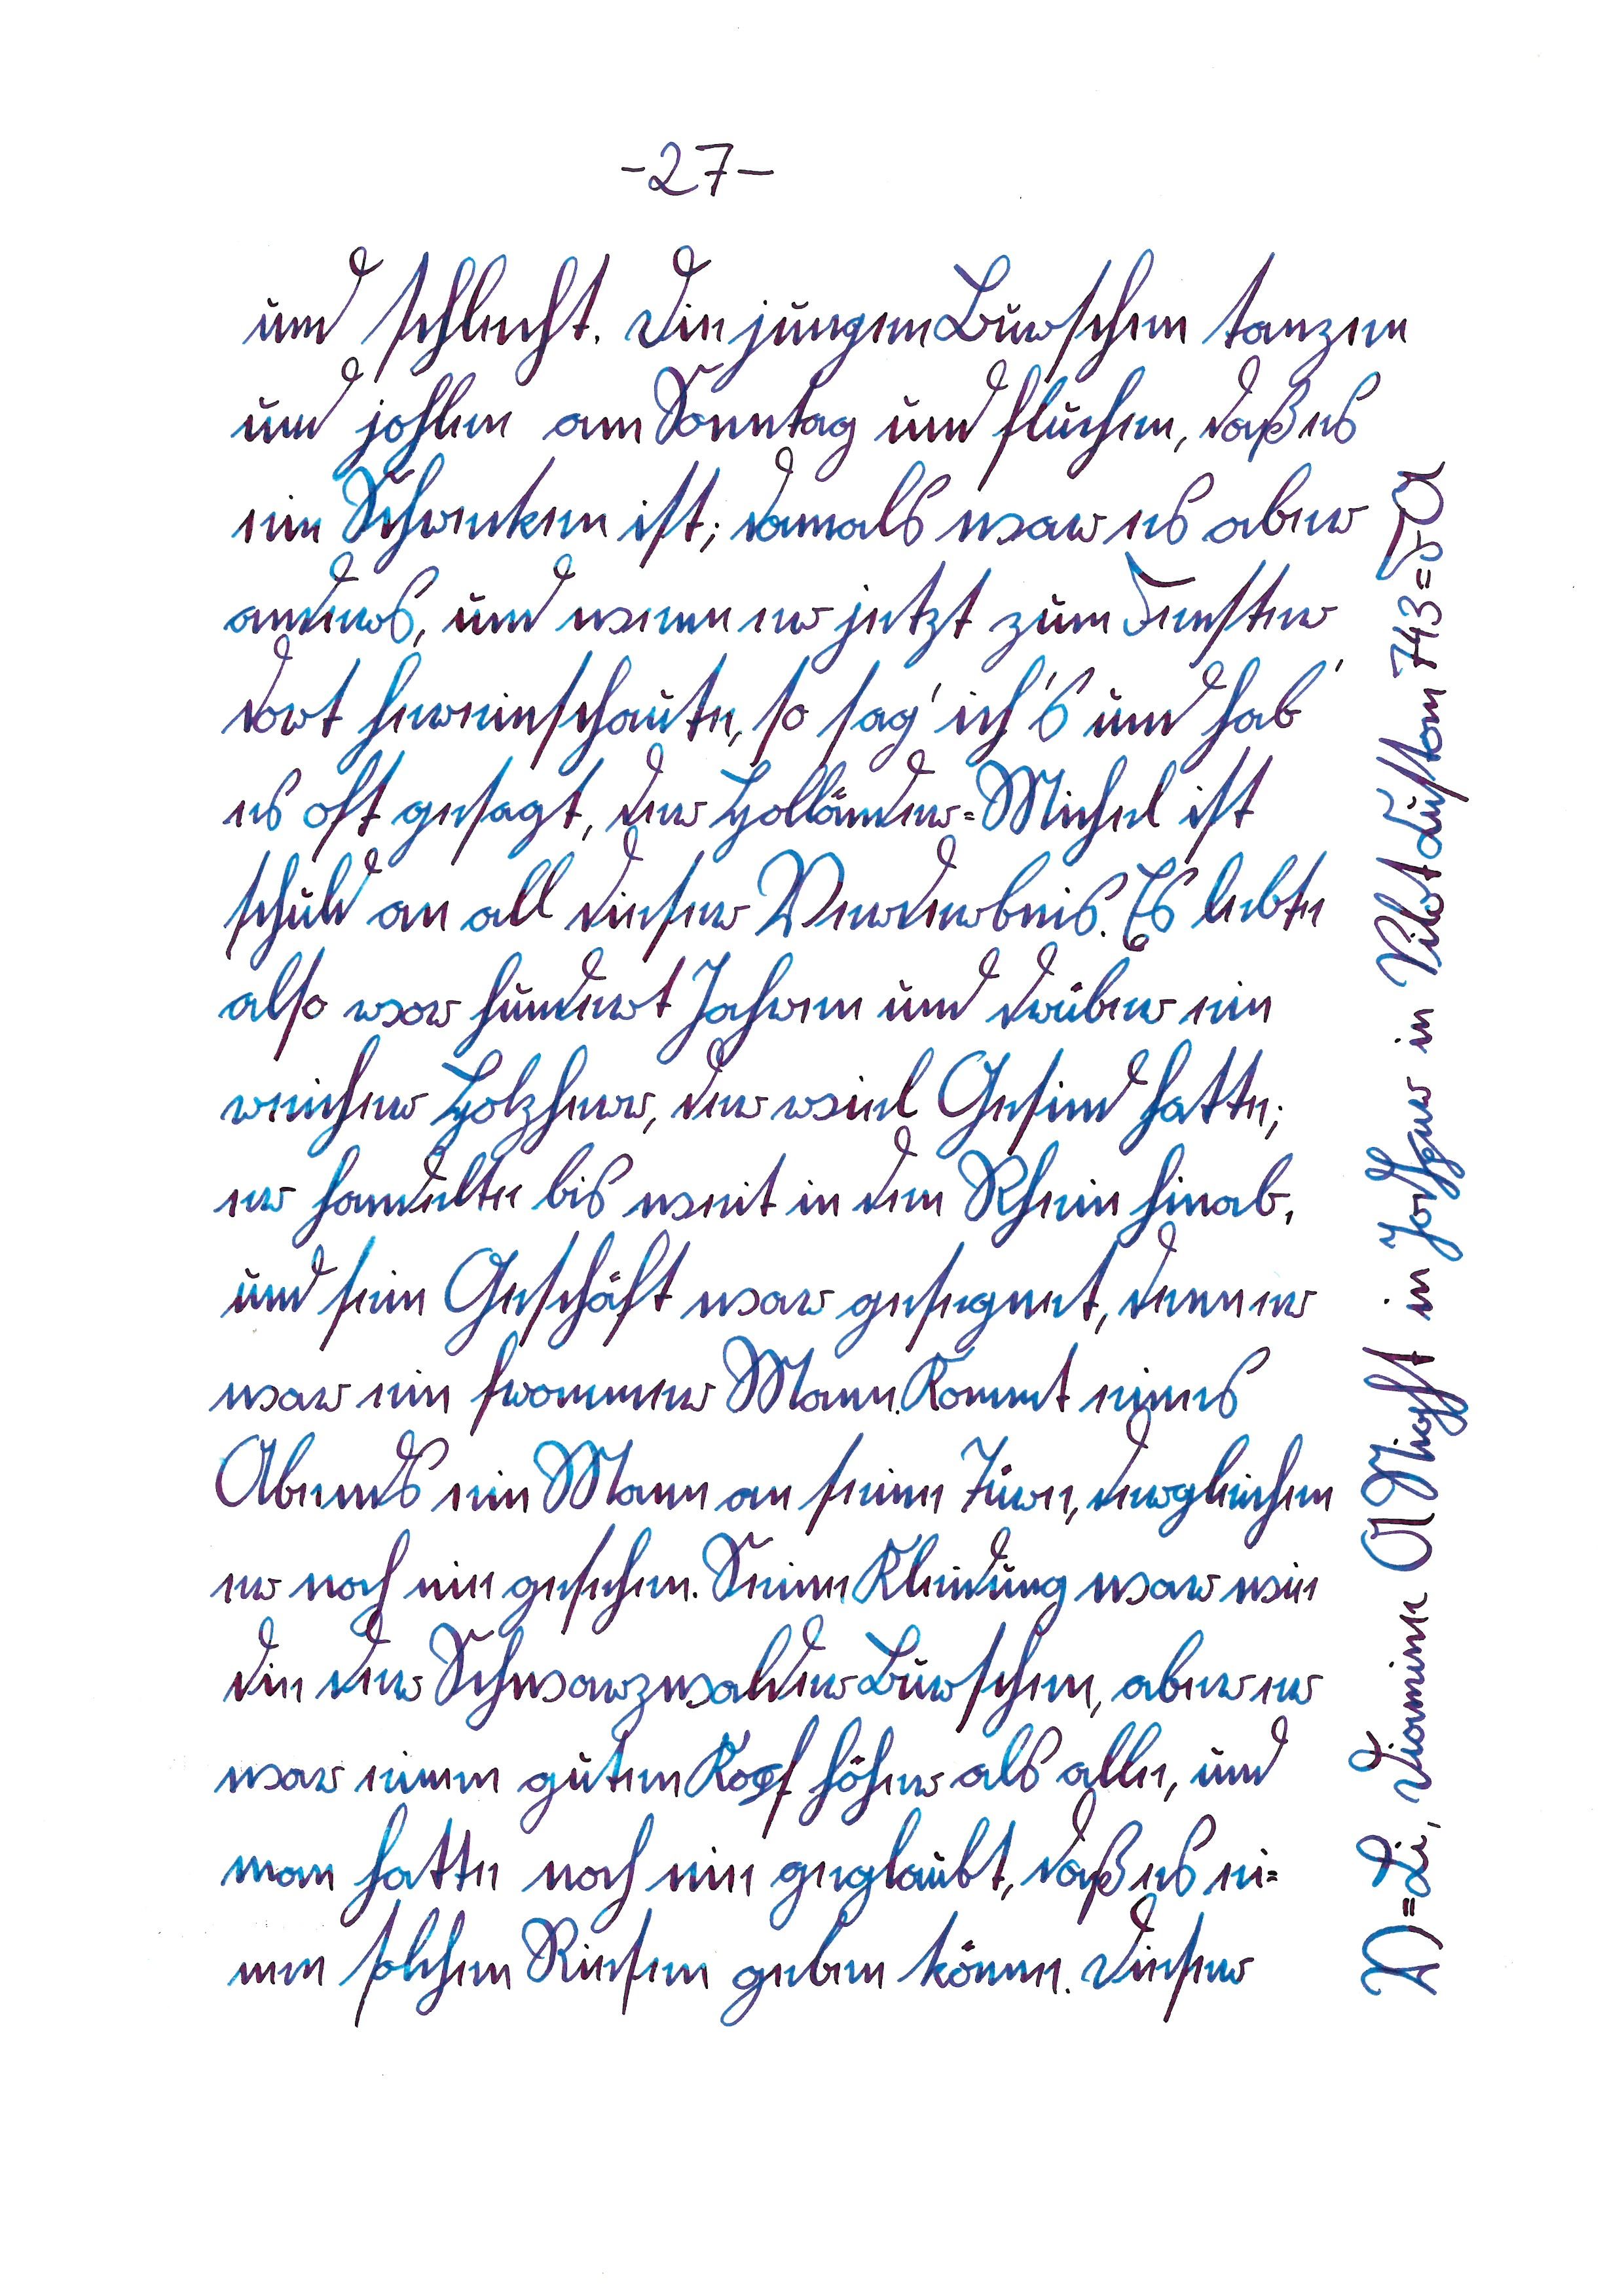 -27-
und schlecht. Die jungen Burschen tanzen
und johlen am Sonntag und fluchen, daß es
ein Schrecken ist; damals war es aber
anders, und wenn er jetzt zum Fenster
dort hereinschaute, so sag' ich's und hab'
es oft gesagt, der Holländer=Michel ist
schuld an all dieser Verderbnis. Es lebte
also vor hundert Jahren und drüber ein
reicher Holzherr, der viel Gesind hatte;
er handelte bis weit in den Rhein hinab,
und sein Geschäft war gesegnet, denn er
war ein frommer Mann. Kommt eines
Abends ein Mann an seine Türe, dergleichen
er noch nie gesehen. Seine Kleidung war wie
die der Schwarzwälder Burschen, aber er
war einen guten Kopf höher als alle, und
man hatte noch nie geglaubt, daß es ei=
nen solchen Riesen geben könne. Dieser
Diamine in in Pilot Custom 743=FA